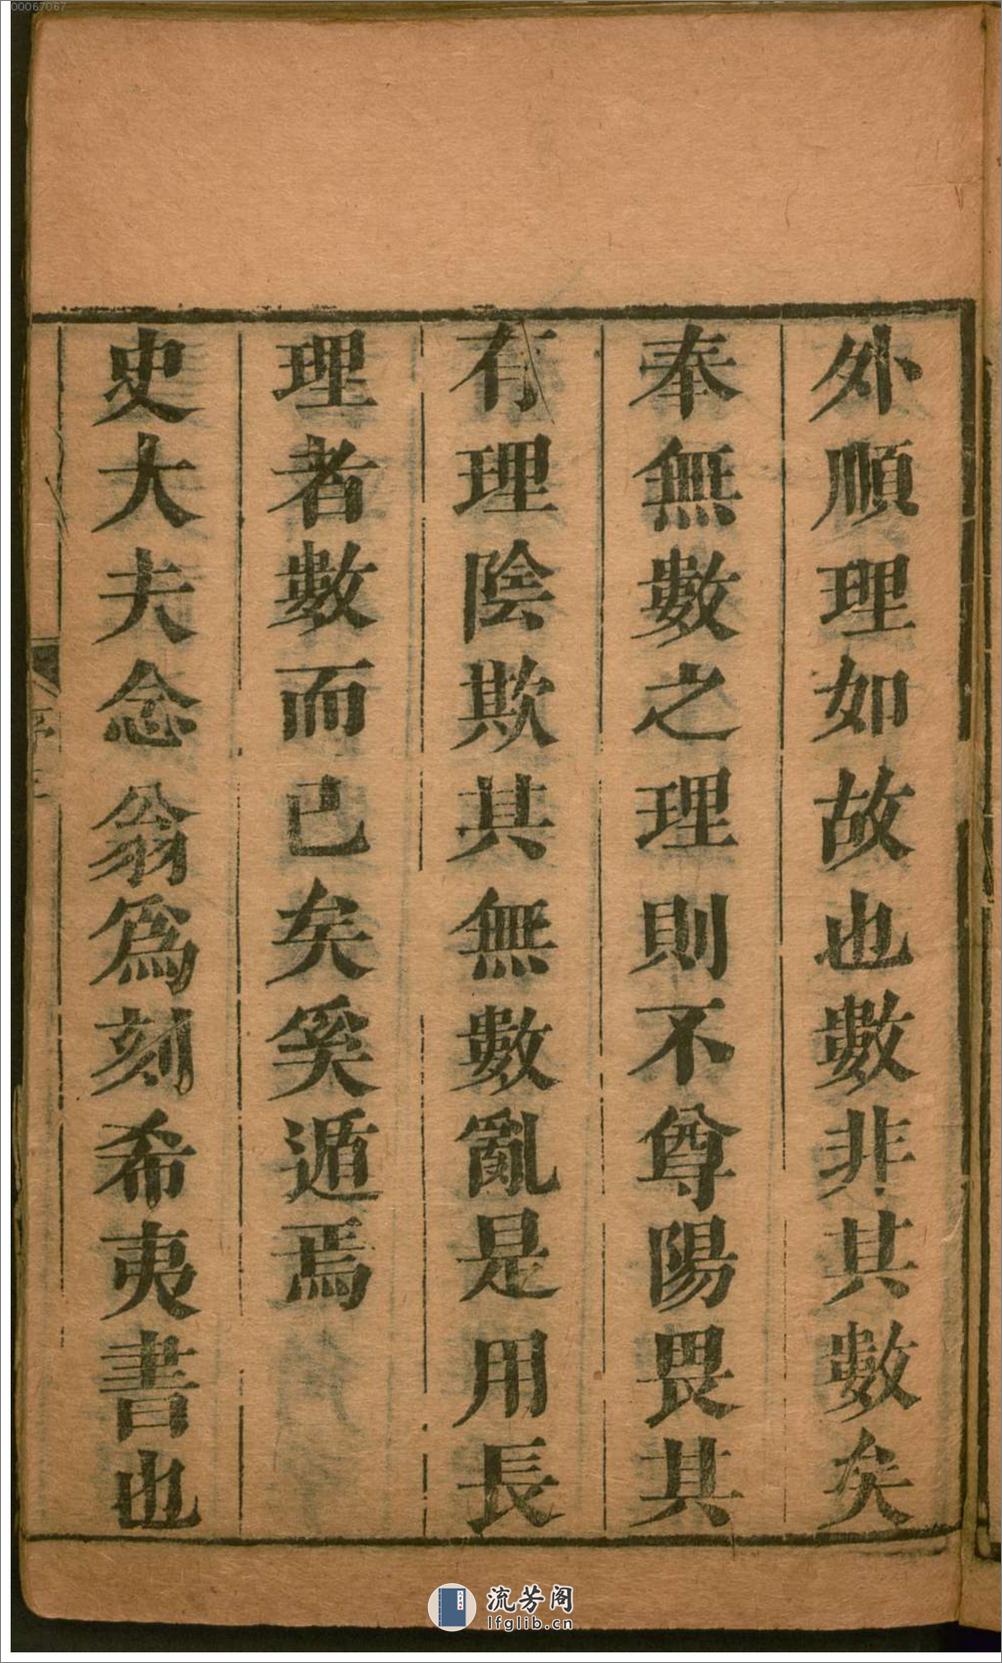 外順理如故也數非其數矣
奉無數之理則不尊陽畏其
有理陰欺其無數亂是用長
理者數而已矣奚遁焉
史大夫念翁爲刻希夷書也
00067067
流芳阁
lfglib.cn